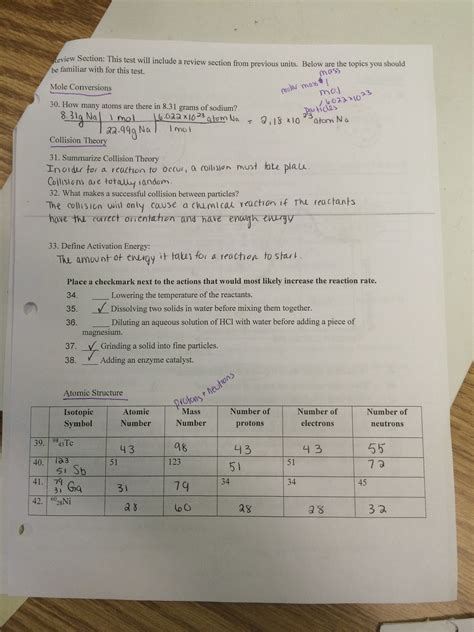 Review Section: This test will include a review section from previous units. Below are the topics you should
be familiar with for this test.
mass
molar mass 1
mol
particles / 6.022x10 23
Mole Conversions
30. How many atoms are there in 8.31 grams of sodium?
8.31g Na | 1 mol | 6.022 x10 23 atom Na = 2.18 x10 23 atom Na
22.99g Na | 1 mol
Collision Theory
31. Summarize Collision Theory
In order for a reaction to occur, a collision must take place.
Collisions are totally random.
32. What makes a successful collision between particles?
The collision will only cause a chemical reaction if the reactants
have the correct orientation and have enough energy
33. Define Activation Energy:
The amount of energy it takes for a reaction to start.
Place a checkmark next to the actions that would most likely increase the reaction rate.
34. ____ Lowering the temperature of the reactants.
35. ✓ Dissolving two solids in water before mixing them together.
36. ____ Diluting an aqueous solution of HCl with water before adding a piece of
magnesium.
37. ✓ Grinding a solid into fine particles.
38. ✓ Adding an enzyme catalyst.
Atomic Structure
protons + neutrons
Isotopic Symbol | Atomic Number | Mass Number | Number of protons | Number of electrons | Number of neutrons
39. 98 43Tc | 43 | 98 | 43 | 43 | 55
40. 123 51 Sb | 51 | 123 | 51 | 51 | 72
41. 79 31 Ga | 31 | 79 | 34 | 34 | 45
42. 60 28Ni | 28 | 60 | 28 | 28 | 32